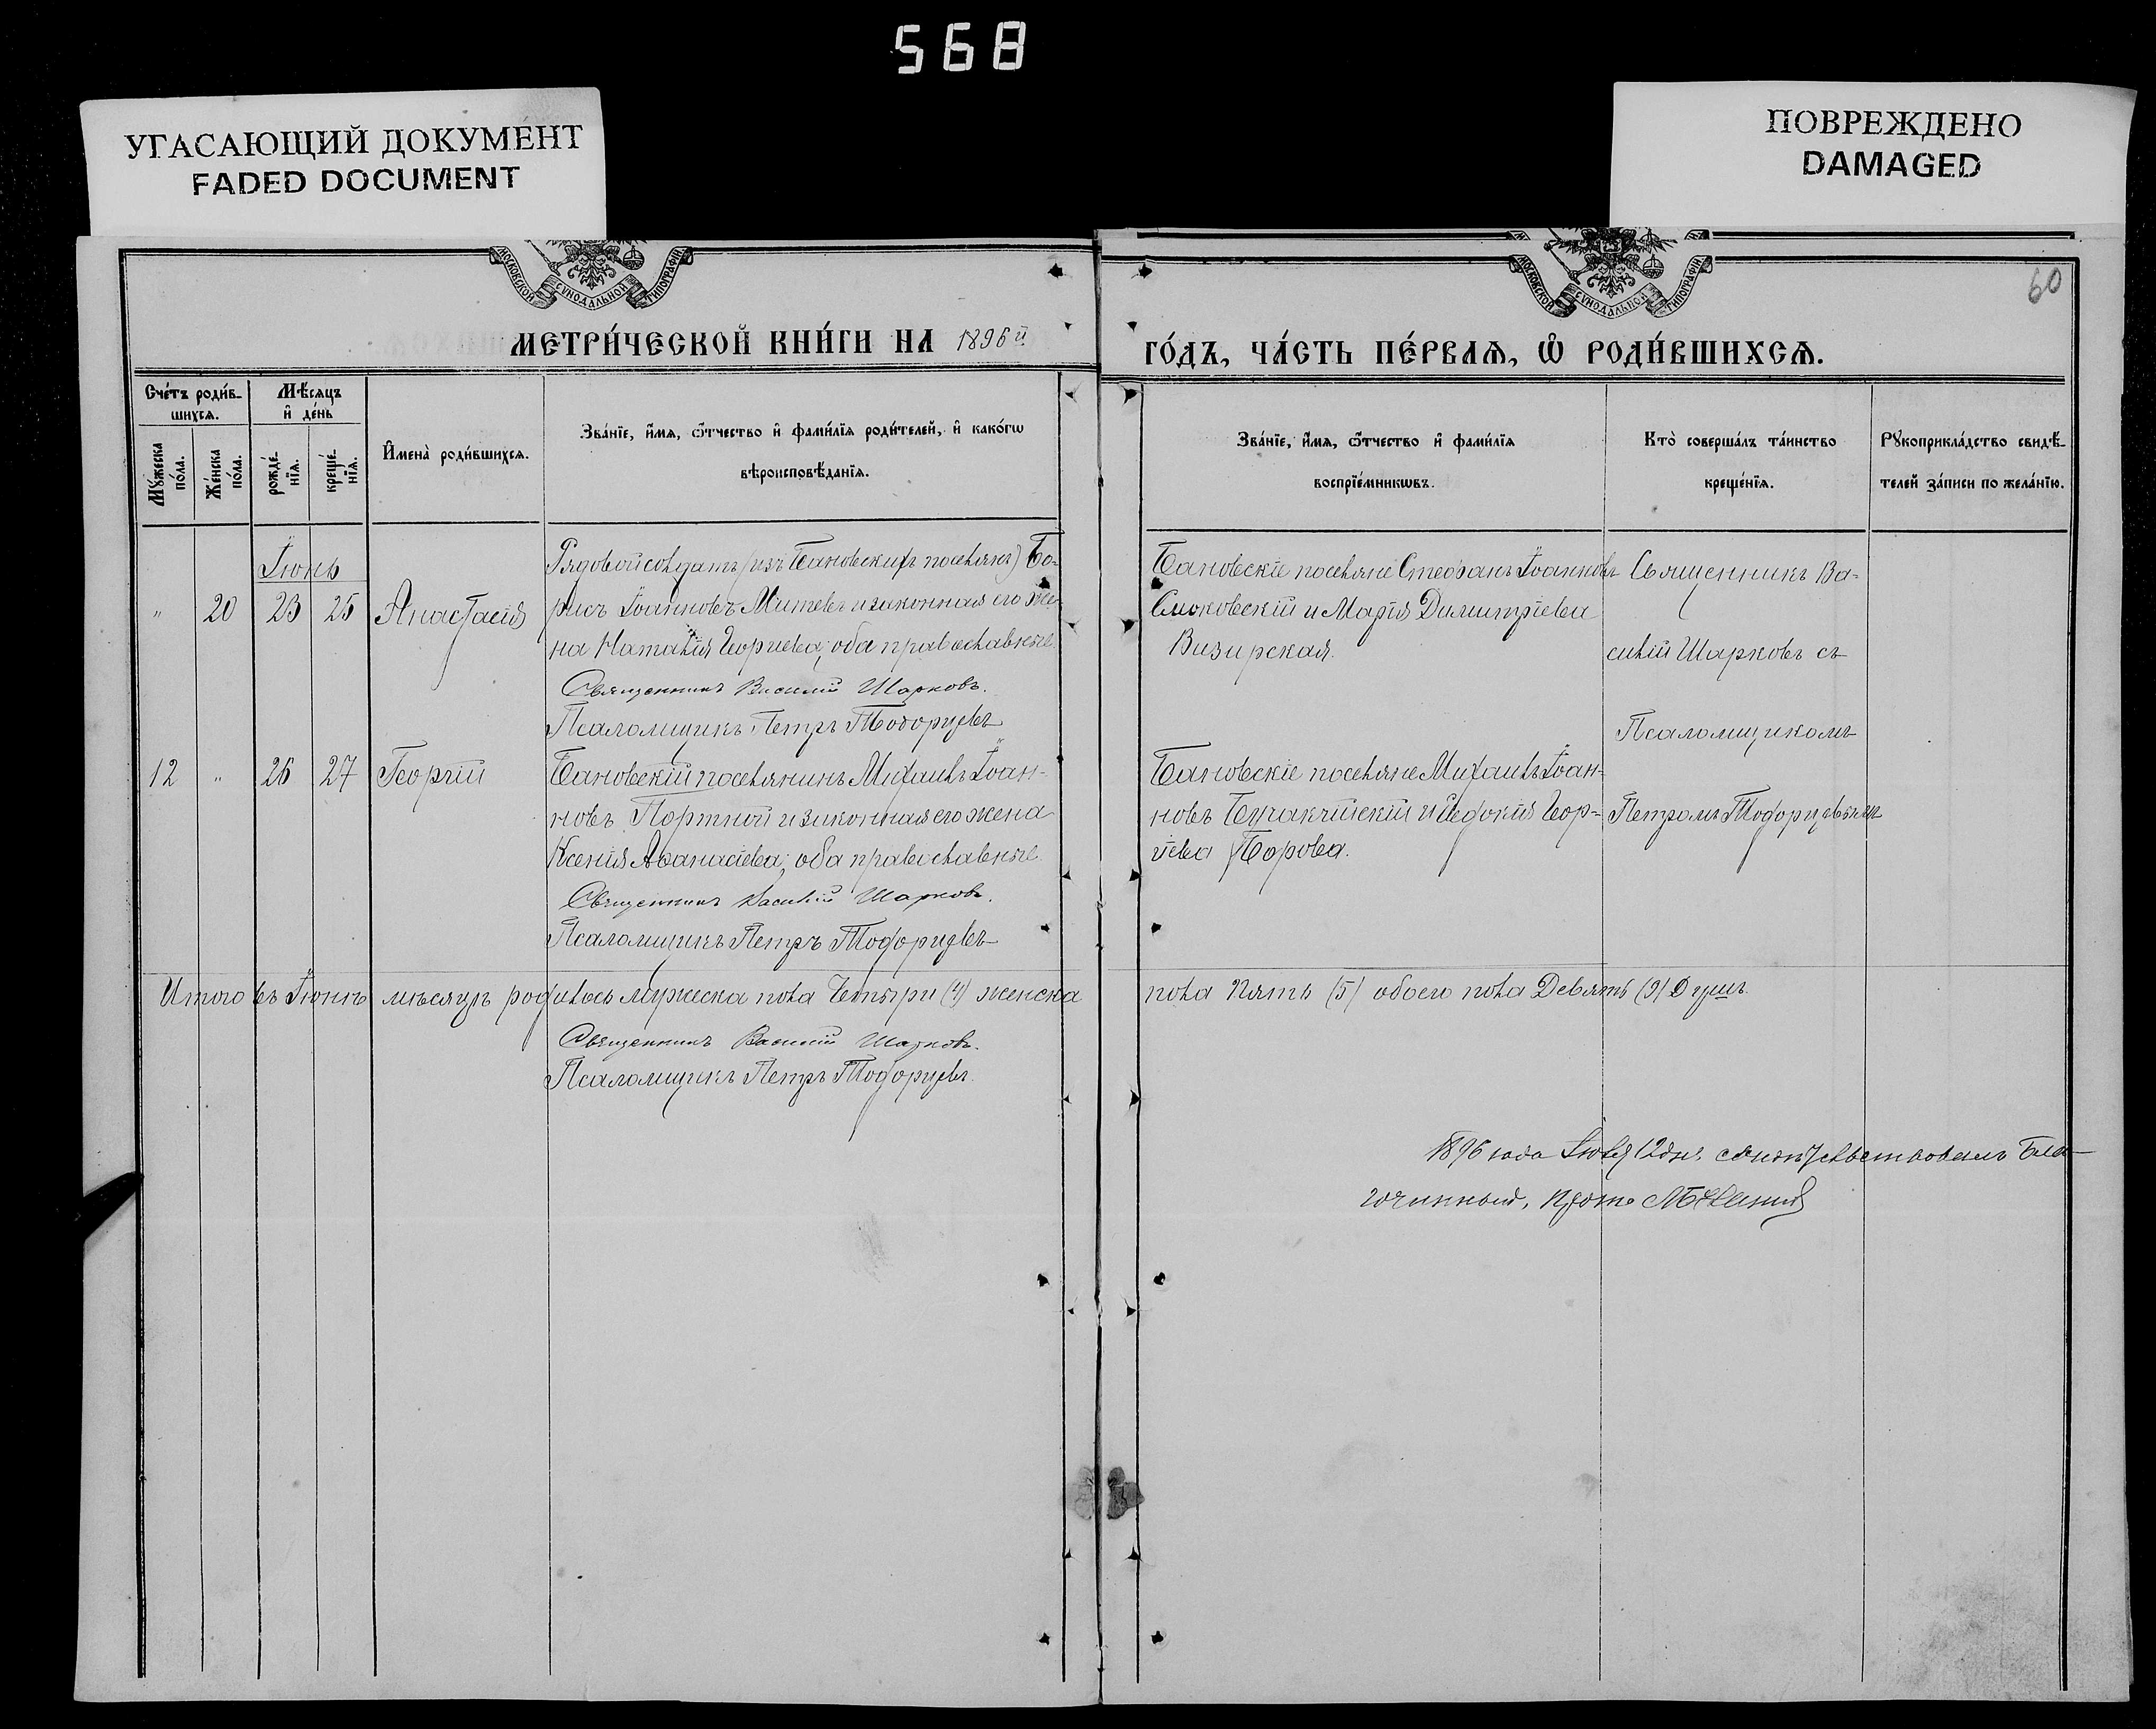 568
УГАСАЮЩИЙ ДОКУМЕНТ
FADED DOCUMENT
ПОВРЕЖДЕНО
DAMAGED
МОСКОВСКОЙ СѴНОДАЛЬНОЙ ТИПОГРАФІИ.
МОСКОВСКОЙ СѴНОДАЛЬНОЙ ТИПОГРАФІИ.
60
МЕТРИ́ЧЕСКОЙ КНИ́ГИ НА 1896й
ГО́ДЪ, ЧА́СТЬ ПЕ́РВАѦ, Ѽ РОДИ́ВШИХСѦ.
Сче́тъ роди́в-
шихсѧ.
Мѣ́сѧцъ
и҆ де́нь
Мꙋ́жеска
по́ла.
Же́нска
по́ла.
рожде́-
нїѧ.
креще́-
нїѧ.
И҆мена̀ роди́вшихсѧ.
Зва́нїе, и҆́мѧ, ѻ҆́тчество и҆ фами́лїѧ роди́телей, и҆ како́гѡ
вѣроисповѣ́данїѧ.
Зва́нїе, и҆́мѧ, ѻ҆́тчество и҆ фами́лїѧ
воспрїе́мникѡвъ.
Кто̀ соверша́лъ та́инство
креще́нїѧ.
Рꙋкоприкла́дство свидѣ́-
телей за́писи по жела́нїю.
Іюнь
" 20 23 25 Анастасія
Рядовой солдатъ (изъ Бановскихъ поселянъ) Бо-
рисъ Іоанновъ Митевъ и законная его же-
на Наталія Георгіева; оба православные.
Священникъ Василій Шарковъ.
Псаломщикъ Петръ Тодорцевъ
Бановскіе поселяне Стефанъ Іоанновъ
Смоковскій и Марія Димитріева
Визирская.
Священникъ Ва-
силій Шарковъ съ
Псаломщикомъ
Петромъ Тодорцевымъ
12 " 26 27 Георгій
Бановскій поселянинъ Михаилъ Іоан-
новъ Портной и законная его жена
Ксенія Аѳанасіева; оба православные.
Священникъ Василій Шарковъ.
Псаломщикъ Петръ Тодорцевъ
Бановскіе поселяне Михаилъ Іоан-
новъ Бучакчійскій и Геор-
гіева Борова.
Итого въ Іюнѣ мѣсяцѣ родилось мужеска пола Четыри (4) женска
пола Пять (5) обоего пола Девять (9) Душъ.
Священникъ Василій Шарковъ.
Псаломщикъ Петръ Тодорцевъ.
1896 года Іюля 12 дня свидѣтельствовалъ Бла-
гочинный, Прот.